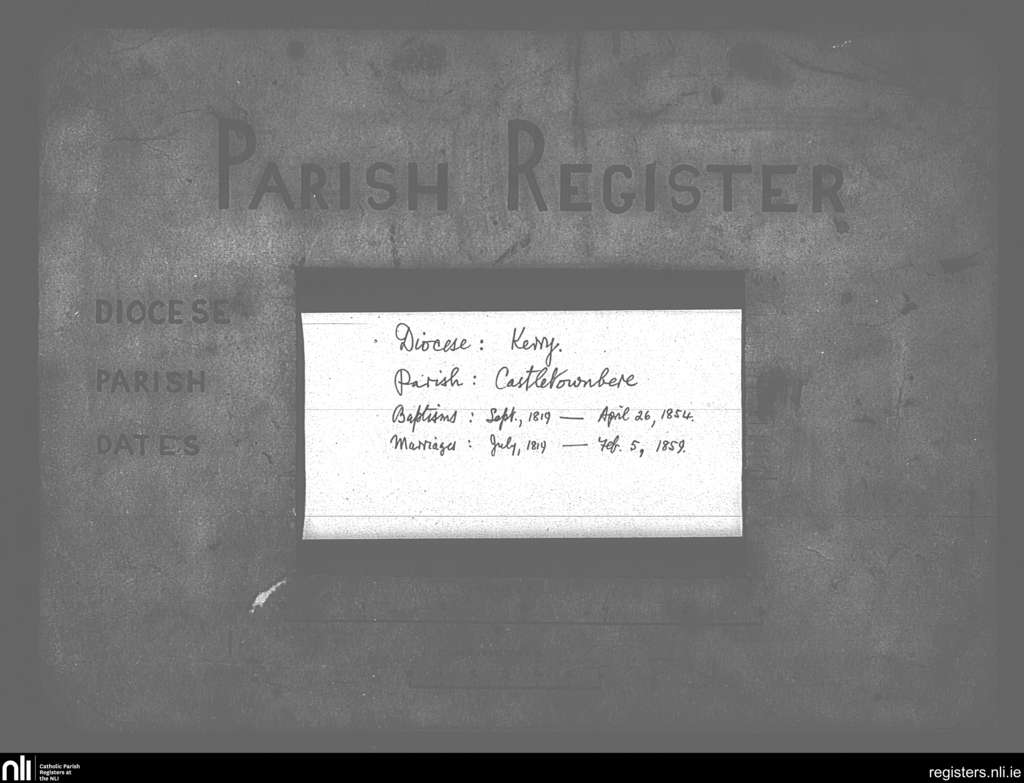 PARISH REGISTER
DIOCESE
PARISH
DATES
Diocese : Kerry.
Parish : Castletownbere
Baptisms : Sept., 1819 — April 26, 1854.
Marriages : July, 1819 — Feb. 5, 1859.
nli
Catholic Parish
Registers at
the NLI
registers.nli.ie